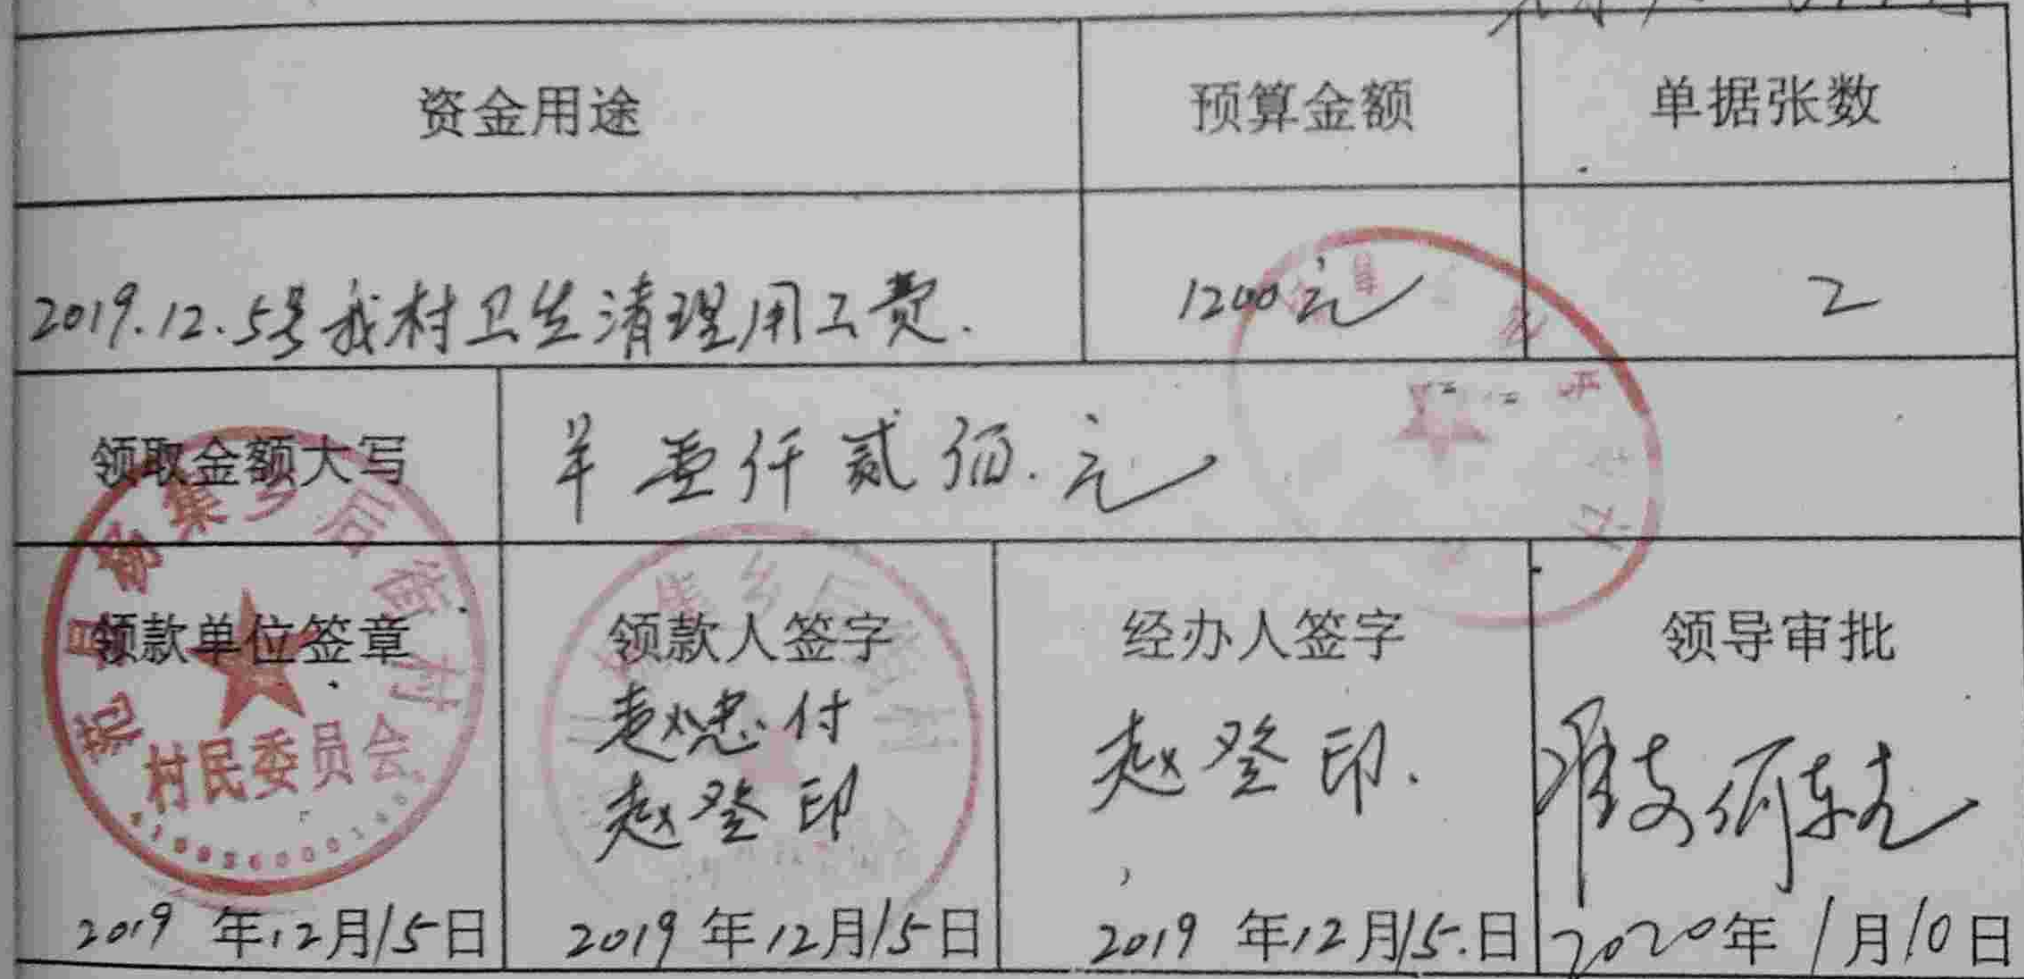 资金用途 预算金额 单据张数
2019.12.5号我村卫生清理用工费. 1200元 2
领取金额大写 羊壹仟贰佰.元
集乡后省村
领款单位签章 领款人签字 经办人签字 领导审批
村民委员会
赵忠付
赵登印 赵登印. 准支
2019年12月15日 2019年12月15日 2019年12月15.日 2020年1月10日